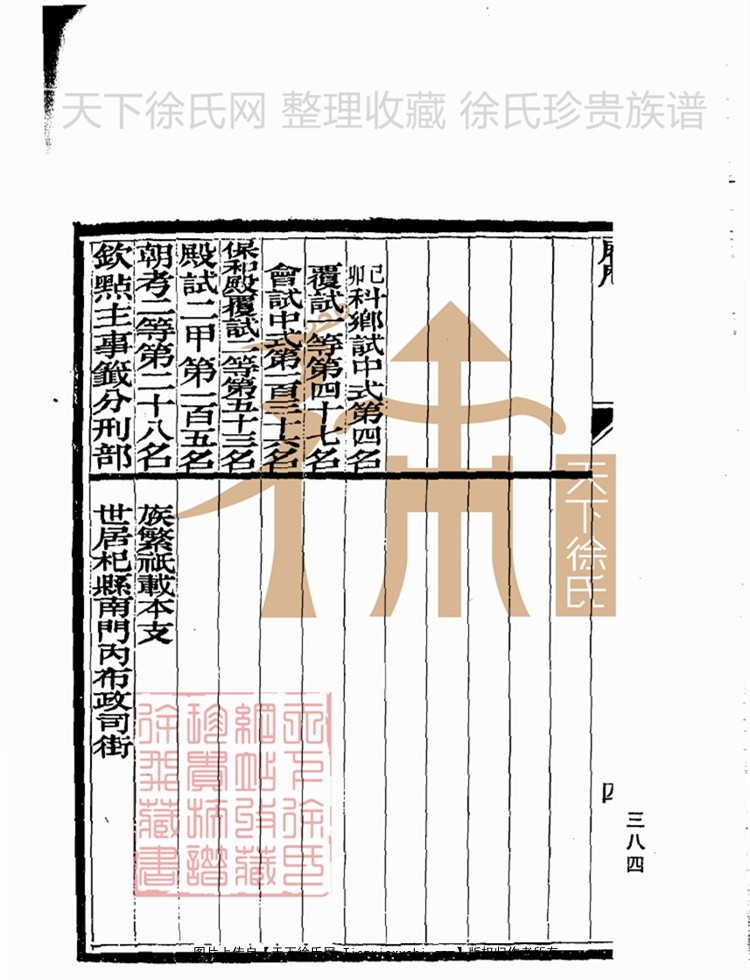 天下徐氏网 整理收藏 徐氏珍贵族谱
己卯科鄉試中式第四名
覆試一等第四十七名
會試中式第一百三十六名
保和殿覆試二等第五十三名
殿試二甲第一百五名
朝考二等第二十八名
欽點主事籤分刑部
族繁祇載本支
世居杞縣南門內布政司街
四
三八四
天下徐氏
天下徐氏
網站收藏
珍貴族譜
徐氏藏書